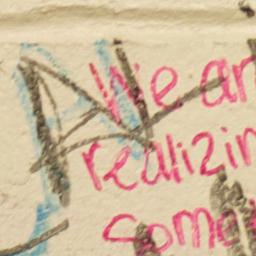 We ar
realizin
some